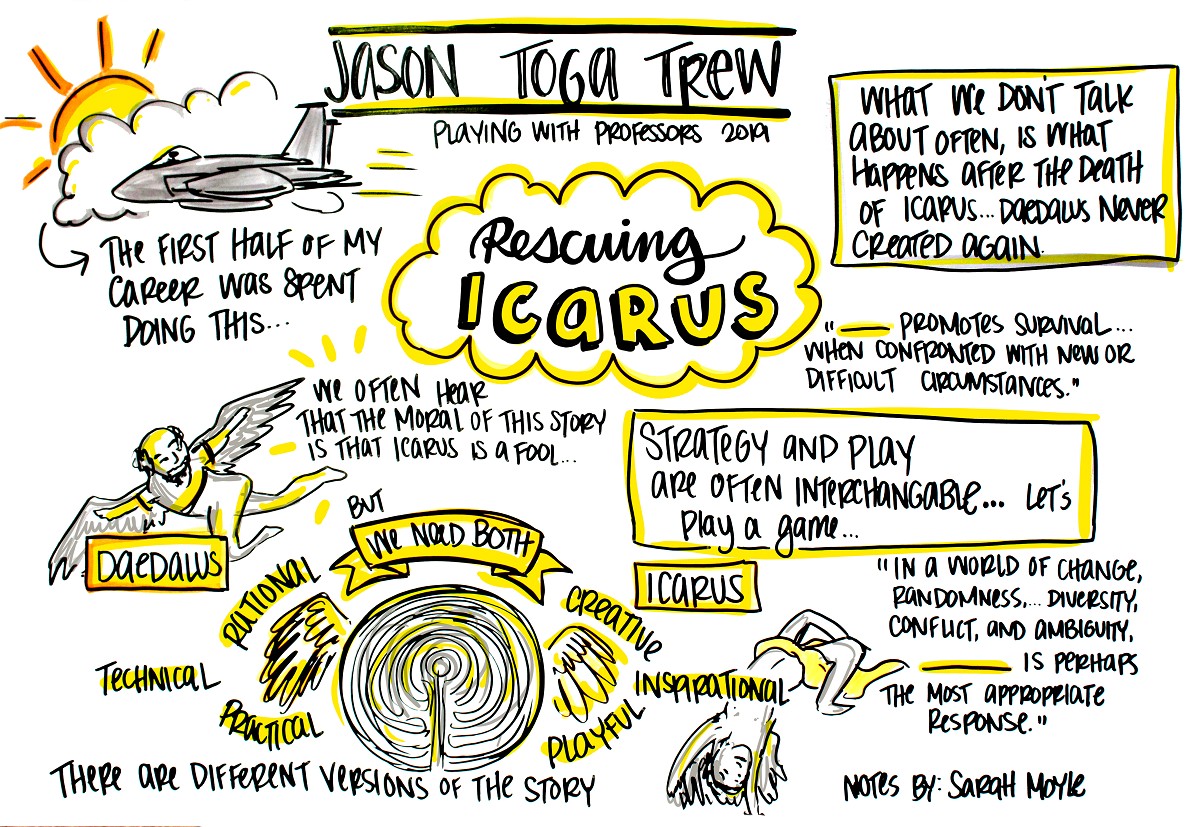 JASON TOGA TREW
PLAYING WITH PROFESSORS 2019
THE FIRST HALF OF MY
CAREER WAS SPENT
DOING THIS...
Rescuing
ICARUS
WHAT WE DON'T TALK
ABOUT OFTEN, IS WHAT
HAPPENS AFTER THE DEATH
OF ICARUS... DAEDALUS NEVER
CREATED AGAIN.
"____ PROMOTES SURVIVAL...
WHEN CONFRONTED WITH NEW OR
DIFFICULT CIRCUMSTANCES."
WE OFTEN HEAR
THAT THE MORAL OF THIS STORY
IS THAT ICARUS IS A FOOL...
DAEDALUS
BUT
WE NEED BOTH
RATIONAL
TECHNICAL
PRACTICAL
CREATIVE
INSPIRATIONAL
PLAYFUL
THERE ARE DIFFERENT VERSIONS OF THE STORY
STRATEGY AND PLAY
ARE OFTEN INTERCHANGABLE... LET'S
PLAY A GAME...
ICARUS
"IN A WORLD OF CHANGE,
RANDOMNESS,... DIVERSITY,
CONFLICT, AND AMBIGUITY,
____ IS PERHAPS
THE MOST APPROPRIATE
RESPONSE."
NOTES BY: SARAH MOYLE